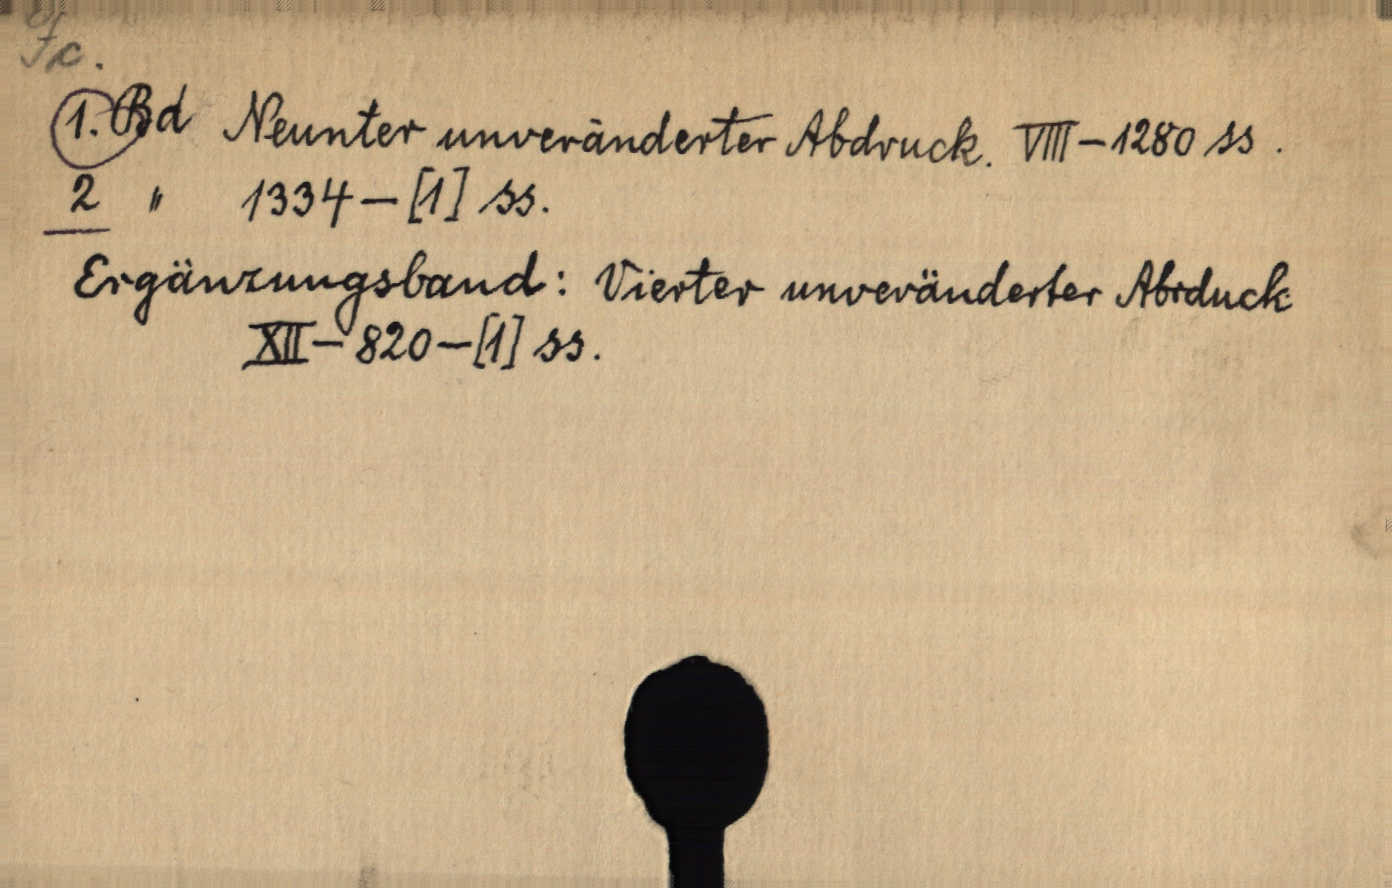 1. Bd Neunter unveränderter Abdruck. VIII – 1280 ss.
2 " 1334 – [1] ss.
Ergänzungsband: Vierter unveränderter Abrduck
XII – 820 – [1] ss.